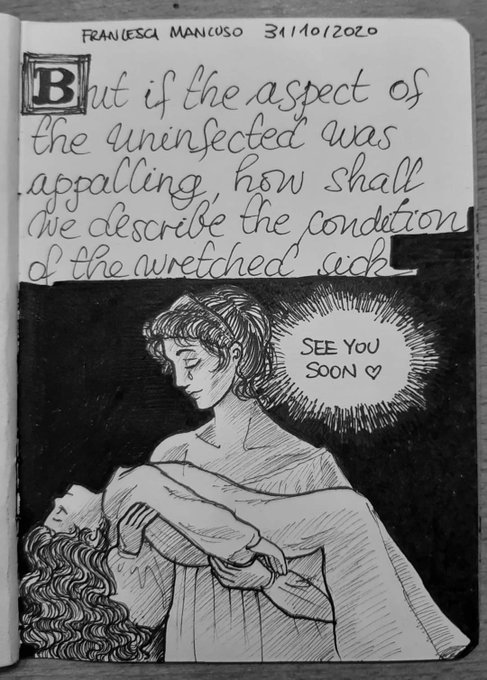 FRANCESCA MANCUSO 31/10/2020
But if the aspect of
the uninfected was
appalling, how shall
we describe the condition
of the wretched sick
SEE YOU
SOON ♡